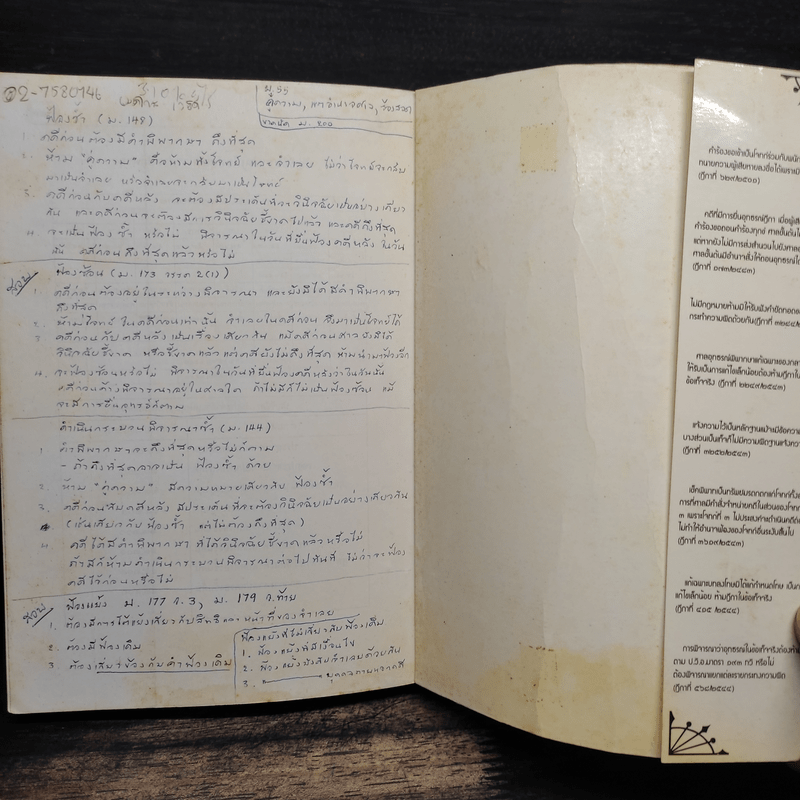 02-7580746
ม.55
คู่ความ,
ฟ้องซ้ำ (ม. 148)
1. คดีก่อนต้องมีคำพิพากษา ถึงที่สุด
2. ห้าม "คู่ความ" คือห้ามทั้งโจทก์ และจำเลย ไม่ว่าโจทก์จะกลับ
มาเป็นจำเลย หรือจำเลยจะกลับมาเป็นโจทก์
3. คดีก่อนกับคดีหลัง จะต้องมีประเด็นที่จะวินิจฉัยเป็นอย่างเดียว
กัน และคดีก่อนจะต้องมีการวินิจฉัยชี้ขาดไปแล้ว และคดีถึงที่สุด
4. จะเป็นฟ้องซ้ำ หรือไม่ พิจารณาในวันที่ยื่นฟ้องคดีหลัง ในวัน
นั้น คดีก่อนถึงที่สุดแล้วหรือไม่
สอบ
ฟ้องซ้อน (ม. 173 วรรค 2(1))
1. คดีก่อนต้องอยู่ในระหว่างพิจารณา และยังมิได้มีคำพิพากษา
ถึงที่สุด
2. ห้ามโจทก์ ในคดีก่อนเท่านั้น จำเลยในคดีก่อน จึงมาเป็นโจทก์ได้
3. คดีก่อนกับคดีหลังเป็นเรื่องเดียวกัน แม้คดีก่อนศาลยังมิได้
วินิจฉัยชี้ขาด หรือชี้ขาดแล้ว แต่คดียังไม่ถึงที่สุด ห้ามนำมาฟ้องอีก
4. จะฟ้องซ้อนหรือไม่ พิจารณาในวันที่ยื่นฟ้องคดีหลังว่าในวันนั้น
คดีก่อนค้างพิจารณาอยู่ในศาลใด ถ้าไม่มีก็ไม่เป็นฟ้องซ้อน แม้
จะมีการยื่นอุทธรณ์ก็ตาม
ดำเนินกระบวนพิจารณาซ้ำ (ม. 144)
1. คำพิพากษาจะถึงที่สุดหรือไม่ก็ตาม
- ถ้าถึงที่สุดอาจเป็น ฟ้องซ้ำ ด้วย
2. ห้าม "คู่ความ" มีความหมายเดียวกับ ฟ้องซ้ำ
3. คดีก่อนกับคดีหลัง มีประเด็นที่จะต้องวินิจฉัยเป็นอย่างเดียวกัน
(เช่นเดียวกับ ฟ้องซ้ำ แต่ไม่ต้องถึงที่สุด)
4. คดีได้มีคำพิพากษา ที่ได้วินิจฉัยชี้ขาดแล้วหรือไม่
ถ้ามีก็ห้ามดำเนินกระบวนพิจารณาต่อไปทันที ไม่ว่าจะฟ้อง
คดีไว้ก่อนหรือไม่
สอบ
ฟ้องแย้ง ม. 177 ว.3, ม. 179 ว.ท้าย
1. ต้องมีการโต้แย้งเกี่ยวกับสิทธิและหน้าที่ของจำเลย
2. ต้องมีฟ้องเดิม
3. ต้องเกี่ยวข้องกับคำฟ้องเดิม
ฟ้องแย้งที่ไม่เกี่ยวกับฟ้องเดิม
1. ฟ้องแย้งที่มีเงื่อนไข
2. ฟ้องแย้งบังคับจำเลยด้วยกัน
3. บุคคลภายนอกคดี
คำร้องขอเข้าเป็นโจทก์ร่วมกับพนัก
ทนายความผู้เสียหายลงชื่อได้เพราะมิ
(ฎีกาที่ ๖๒๙/๒๕๐๑)
คดีที่มีการยื่นอุทธรณ์ฎีกา เมื่อผู้เสีย
คำร้องขอถอนคำร้องทุกข์ ศาลชั้นต้นไ
แต่หากยังไม่มีการส่งสำนวนไปยังศาล
ศาลชั้นต้นมีอำนาจสั่งให้ถอนอุทธรณ์ไ
ไม่มีกฎหมายห้ามมิให้รับฟังคำซัดทอดของ
ศาลอุทธรณ์พิพากษาแก้เฉพาะของกลาง
ให้รับเป็นการแก้ไขเล็กน้อยต้องห้ามฎีกาใน
ข้อเท็จจริง (ฎีกาที่ ๒๒๔๙/๒๕๔๓)
แจ้งความไว้เป็นหลักฐานแม้จะมีข้อความ
บางส่วนเป็นเท็จก็ไม่มีความผิดฐานแจ้งความ
(ฎีกาที่ ๓๒๕๒/๒๕๔๓)
๓ เพราะโจทก์ที่ ๓ ไม่ประสงค์จะดำเนินคดีต่อ
ไม่ทำให้อำนาจฟ้องของโจทก์อื่นระงับสิ้นไป
(ฎีกาที่ ๓๖๑๙/๒๕๔๓)
แก้เฉพาะบทลงโทษมิได้แก้กำหนดโทษ เป็นก
แก้ไขเล็กน้อย ห้ามฎีกาในข้อเท็จจริง
(ฎีกาที่ ๔๐๕ ๒๕๔๔)
การพิจารณาว่าอุทธรณ์ในข้อเท็จจริงต้องห้าม
ตาม ป.วิ.อ.มาตรา ๑๙๓ ทวิ หรือไม่
ต้องพิจารณาแยกแต่ละรายกระทงความผิด
(ฎีกาที่ ๕๖๘/๒๕๔๔)